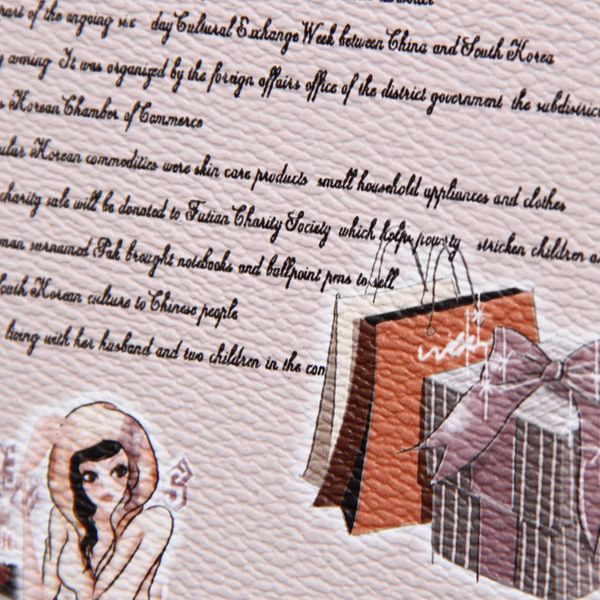 part of the ongoing six day Cultural Exchange Week between China and South Korea
It was organized by the foreign affairs office of the district government the subdistrict
Korean Chamber of Commerce
Korean commodities were skin care products small household appliances and clothes
charity sale will be donated to Futian Charity Society which helps poverty stricken children
man surnamed Pak brought notebooks and ballpoint pens to sell
South Korean culture to Chinese people
living with her husband and two children in the con